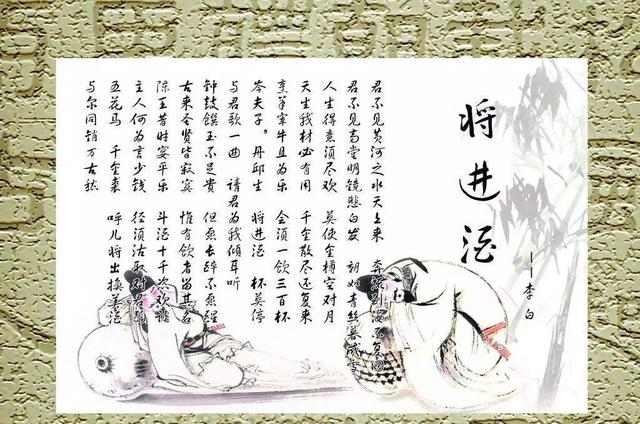 将进酒
——李白
君不见黄河之水天上来 奔流到海不复回
君不见高堂明镜悲白发 朝如青丝暮成雪
人生得意须尽欢 莫使金樽空对月
天生我材必有用 千金散尽还复来
烹羊宰牛且为乐 会须一饮三百杯
岑夫子。丹邱生 将进酒 杯莫停
与君歌一曲 请君为我倾耳听
钟鼓馔玉不足贵 但愿长醉不愿醒
古来圣贤皆寂寞 惟有饮者留其名
陈王昔时宴平乐 斗酒十千恣欢谑
主人何为言少钱 径须沽取对君酌
五花马 千金裘 呼儿将出换美酒
与尔同销万古愁